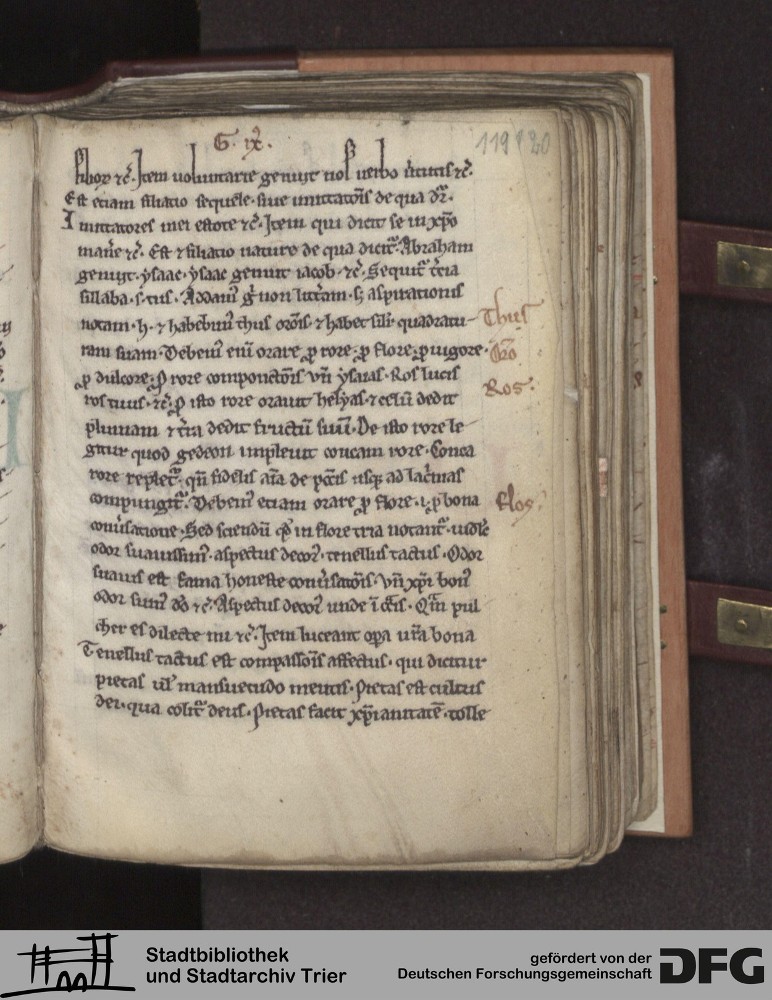 G. ix.
119 120
filioꝝ ⁊c̄. Item voluntarie genuit nos verbo ṽitatis ⁊c̄.
Est etiam filiatio sequele siue imitatōis de qua dr̄.
Imitatores mei estote ⁊c̄. Item qui dicit se in xp̄o
man̄e ⁊c̄. Est ⁊ filiatio nature de qua dicit᷑. Abraham
genuit ysaac. ysaac genuit iacob. ⁊c̄. Sequit᷑ t̄cia
sillaba. s. tus. Addam᷒ g̊ non litt̄am. s; aspirationis
notam. h. ⁊ habebim᷒ thus orōis. ⁊ habet sil̄r quadratu-
ram suam. Debem᷒ eni᷑ orare ꝓ rore. ꝓ flore. ꝓ uigore.
ꝓ dulcore. ꝓ rore compunctōis vn̄ ysaias. Ros lucis
ros tuus. ⁊c̄. ꝓ isto rore orauit helyas. ⁊ celū dedit
pluuiam ⁊ t̄ra dedit fructū suū. De isto rore le-
gitur quod gedeon impleuit concam rore. Conca
rore replet᷑. qn̄ fidelis aīa de pctīs usq; ad lac̄mas
compungit᷑. Debem᷒ etiam orare ꝓ flore. i. ꝓ bona
conūsatione. Sed sciendū qd̄ in flore tria notant᷑. uidlꝫ
odor suauissim᷒. aspectus decor᷒. tenellus tactus. Odor
suauis est fama honeste conūsatōis. vn̄ xp̄i bon᷒
odor sum᷒ dō ⁊c̄. Aspectus decor᷒ unde ī cātis. Qm̄ pul
cher es dilecte mi ⁊c̄. Item luceant opa ur̄a bona
Tenellus tactus est compassiōis affectus. qui dicitur
pietas ul̄ mansuetudo mentis. Pietas est cultus
dei. qua colit᷑ deus. Pietas facit xp̄ianitatē. tolle
Thus
Oro
Ros.
flos.
Stadtbibliothek
und Stadtarchiv Trier
gefördert von der
Deutschen Forschungsgemeinschaft
DFG